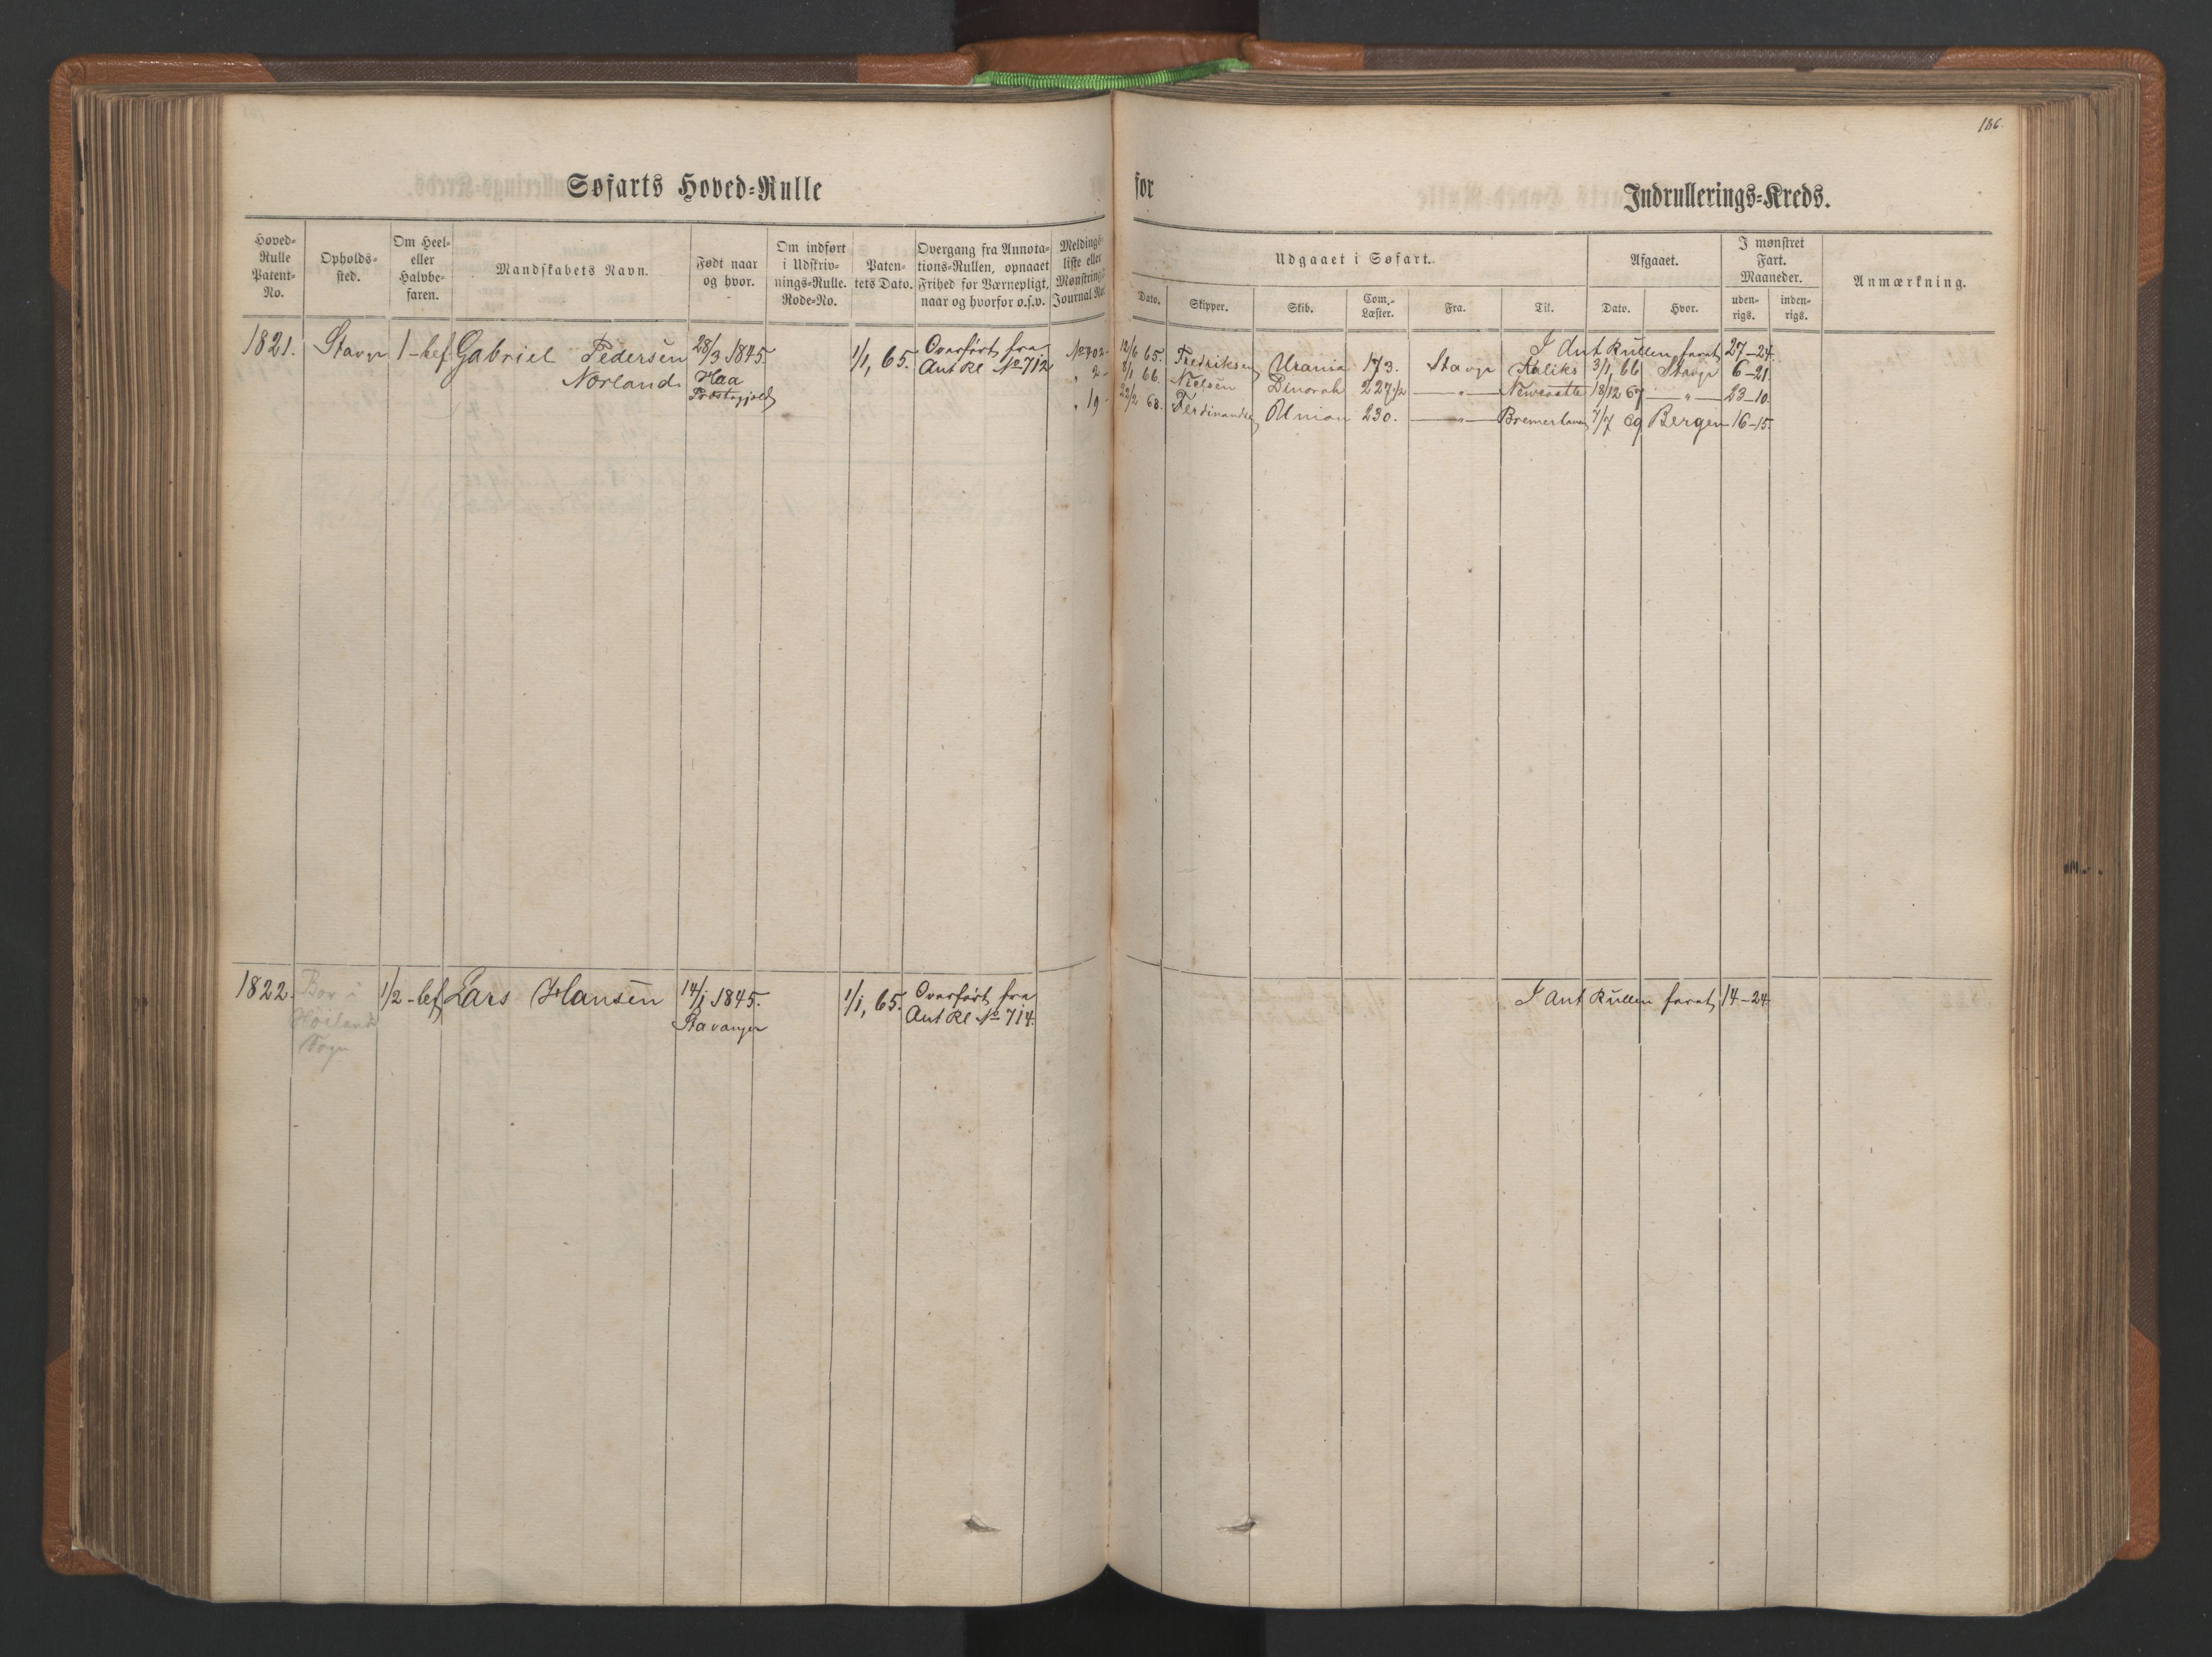 186.
Søfarts Hoved=Rulle for Indrullerings=Kreds.
Hoved=Rulle Patent=No.
Opholds=sted.
Om Heel= eller Halvbe=faren.
Mandskabets Navn.
Født naar og hvor.
Om indført i Udskriv=nings=Rulle. Rode=No.
Paten=tets Dato.
Overgang fra Annota=tions=Rullen, opnaaet Frihed for Værnepligt, naar og hvorfor o.s.v.
Meldings=liste eller Mønstrings Journal No.
Udgaaet i Søfart.
Dato.
Skipper.
Skib.
Com.=Læster.
Fra.
Til.
Afgaaet.
Dato.
Hvor.
I mønstret Fart. Maaneder.
uden=rigs.
inden=rigs.
Anmærkning.
1821. Stavgr 1-bef. Gabriel Pedersen 28/3 1845. 1/1, 65. Overført fra I Ant Rullen faret 27-24.
Norland. Haa Ant Rl No 712
Præstegjeld
No 402. 12/6 65. Fredriksen Urania 173. Stavgr Kaliks 3/1, 66 Stavgr 6-21.
" 2- 8/1 66. Nielsen Dinorah 227 1/2 — " — Newcastle 18/12 67 — " — 23-10.
" 19- 22/2 68. Ferdinandsen Union 230. — " — Bremerhaven 7/7 69 Bergen 16-15.
1822. Bor i 1/2-bef. Lars Hansen 14/1 1845. 1/1, 65. Overført fra I Ant Rullen faret 14-24.
Høiland Stavanger Ant Rl No 714.
Sogn